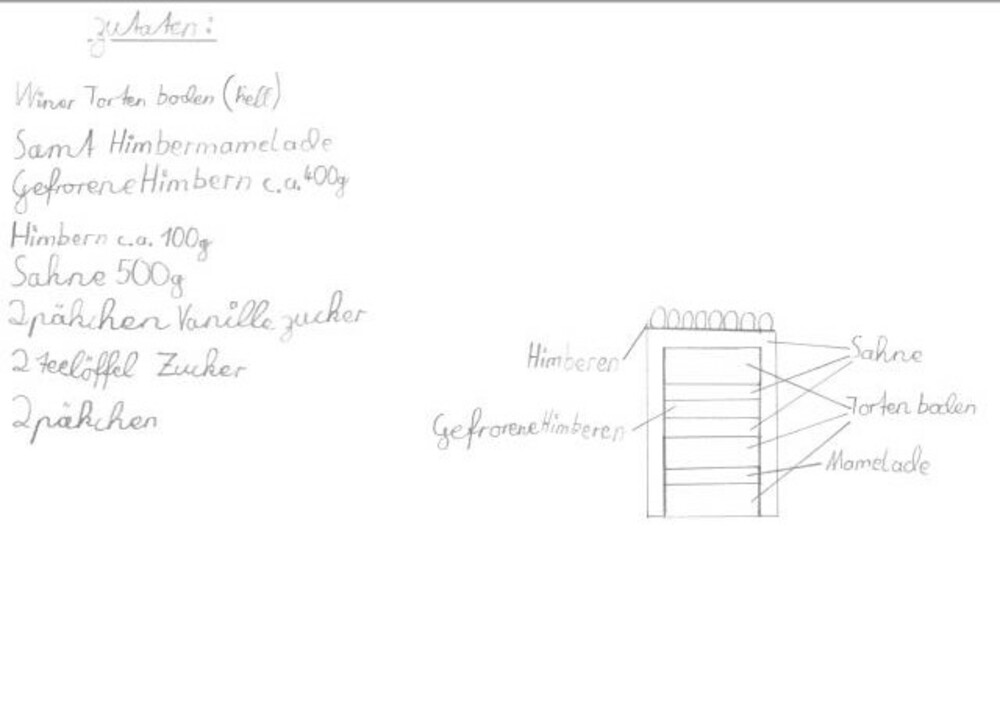 Zutaten:
Winer Torten boden (hell)
Samt Himbermamelade
Gefrorene Himbern c.a. 400g
Himbern c.a. 100g
Sahne 500g
2 päkchen Vanille zucker
2 teelöffel Zucker
2 päkchen
Himberen
Sahne
Torten boden
Gefrorene Himberen
Mamelade